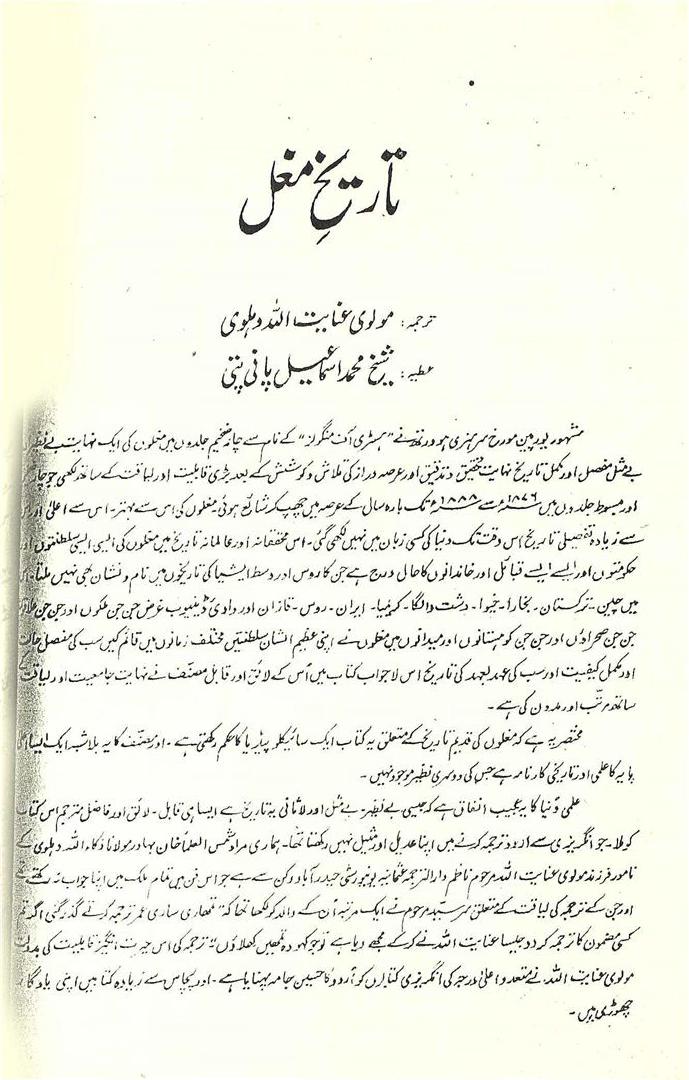 تاریخِ مغل
ترجمہ: مولوی عنایت اللہ دہلوی
عطیہ: شیخ محمد اسماعیل پانی پتی
مشہور یورپین مورخ سر ہنری ہورتھ نے "ہسٹری آف منگولز" کے نام سے چار ضخیم جلدوں میں مغلوں کی ایک نہایت بے نظیر
بے مثل مفصل اور مکمل تاریخ نہایت تحقیق و تدقیق اور عرصہ دراز کی تلاش و کوشش کے بعد بڑی قابلیت اور لیاقت کے ساتھ لکھی جو چار
اور مبسوط جلدوں میں ۱۸۷۶ء سے ۱۸۸۸ء تک بارہ سال کے عرصہ میں چھپ کر شائع ہوئی مغلوں کی اس سے بہتر۔ اس سے اعلیٰ اور
سے زیادہ تفصیلی تاریخ اس وقت تک دنیا کی کسی زبان میں نہیں لکھی گئی۔ اس محققانہ اور عالمانہ تاریخ میں مغلوں کی ایسی ایسی سلطنتوں اور
حکومتوں اور ایسے ایسے قبائل اور خاندانوں کا حال درج ہے جن کا روس اور وسط ایشیا کی تاریخوں میں نام و نشان بھی نہیں ملتا۔
میں چین۔ ترکستان۔ بخارا۔ خیوا۔ دشت والگا۔ کریمیا۔ ایران۔ روس۔ قازان اور وادی ڈینیوب غرض جن جن ملکوں اور جن جن
جن جن صحراؤں اور جن جن کوہستانوں اور میدانوں میں مغلوں نے اپنی عظیم الشان سلطنتیں مختلف زمانوں میں قائم کیں سب کی مفصل حالت
اور مکمل کیفیت اور سب کی عہد بعہد کی تاریخ اس لاجواب کتاب میں اُس کے لائق اور قابل مصنف نے نہایت جامعیت اور لیاقت کے
ساتھ مرتب اور مدون کی ہے۔
مختصر یہ ہے کہ مغلوں کی قدیم تاریخ کے متعلق یہ کتاب ایک سائیکلو پیڈیا کا حکم رکھتی ہے۔ اور مصنف کا یہ بلاشبہ ایک ایسا
پایہ کا علمی اور تاریخی کارنامہ ہے جس کی دوسری نظیر موجود نہیں۔
علمی دُنیا کا یہ عجیب اتفاق ہے کہ جیسی بے نظیر۔ بے مثل اور لاثانی یہ تاریخ ہے ایسا ہی قابل۔ لائق اور فاضل مترجم اس کتاب
کو ملا۔ جو انگریزی سے اردو ترجمہ کرنے میں اپنا عدیل اور مثیل نہیں رکھتا تھا۔ ہماری مراد شمس العلما خان بہادر مولانا ذکاء اللہ دہلوی کے
نامور فرزند مولوی عنایت اللہ مرحوم ناظم دار الترجمہ عثمانیہ یونیورسٹی حیدر آباد دکن سے ہے جو اس فن میں تمام ملک میں اپنا جواب نہ رکھتے تھے
اور جن کے ترجمہ کی لیاقت کے متعلق سر سید مرحوم نے ایک مرتبہ اُن کے والد کو لکھا تھا کہ "تمھاری ساری عمر ترجمہ کرتے گذر گئی اگر تم
کسی مضمون کا ترجمہ کر دو جیسا عنایت اللہ نے کر کے مجھے دیا ہے تو جو کہو وہ تمھیں کھلاؤں" ترجمہ کی اس حیرت انگیز قابلیت کی بدولت
مولوی عنایت اللہ نے متعدد اعلیٰ درجہ کی انگریزی کتابوں کو اُردو کا حسین جامہ پہنایا ہے۔ اور پچاس سے زیادہ کتابیں اپنی یادگار
چھوڑی ہیں۔